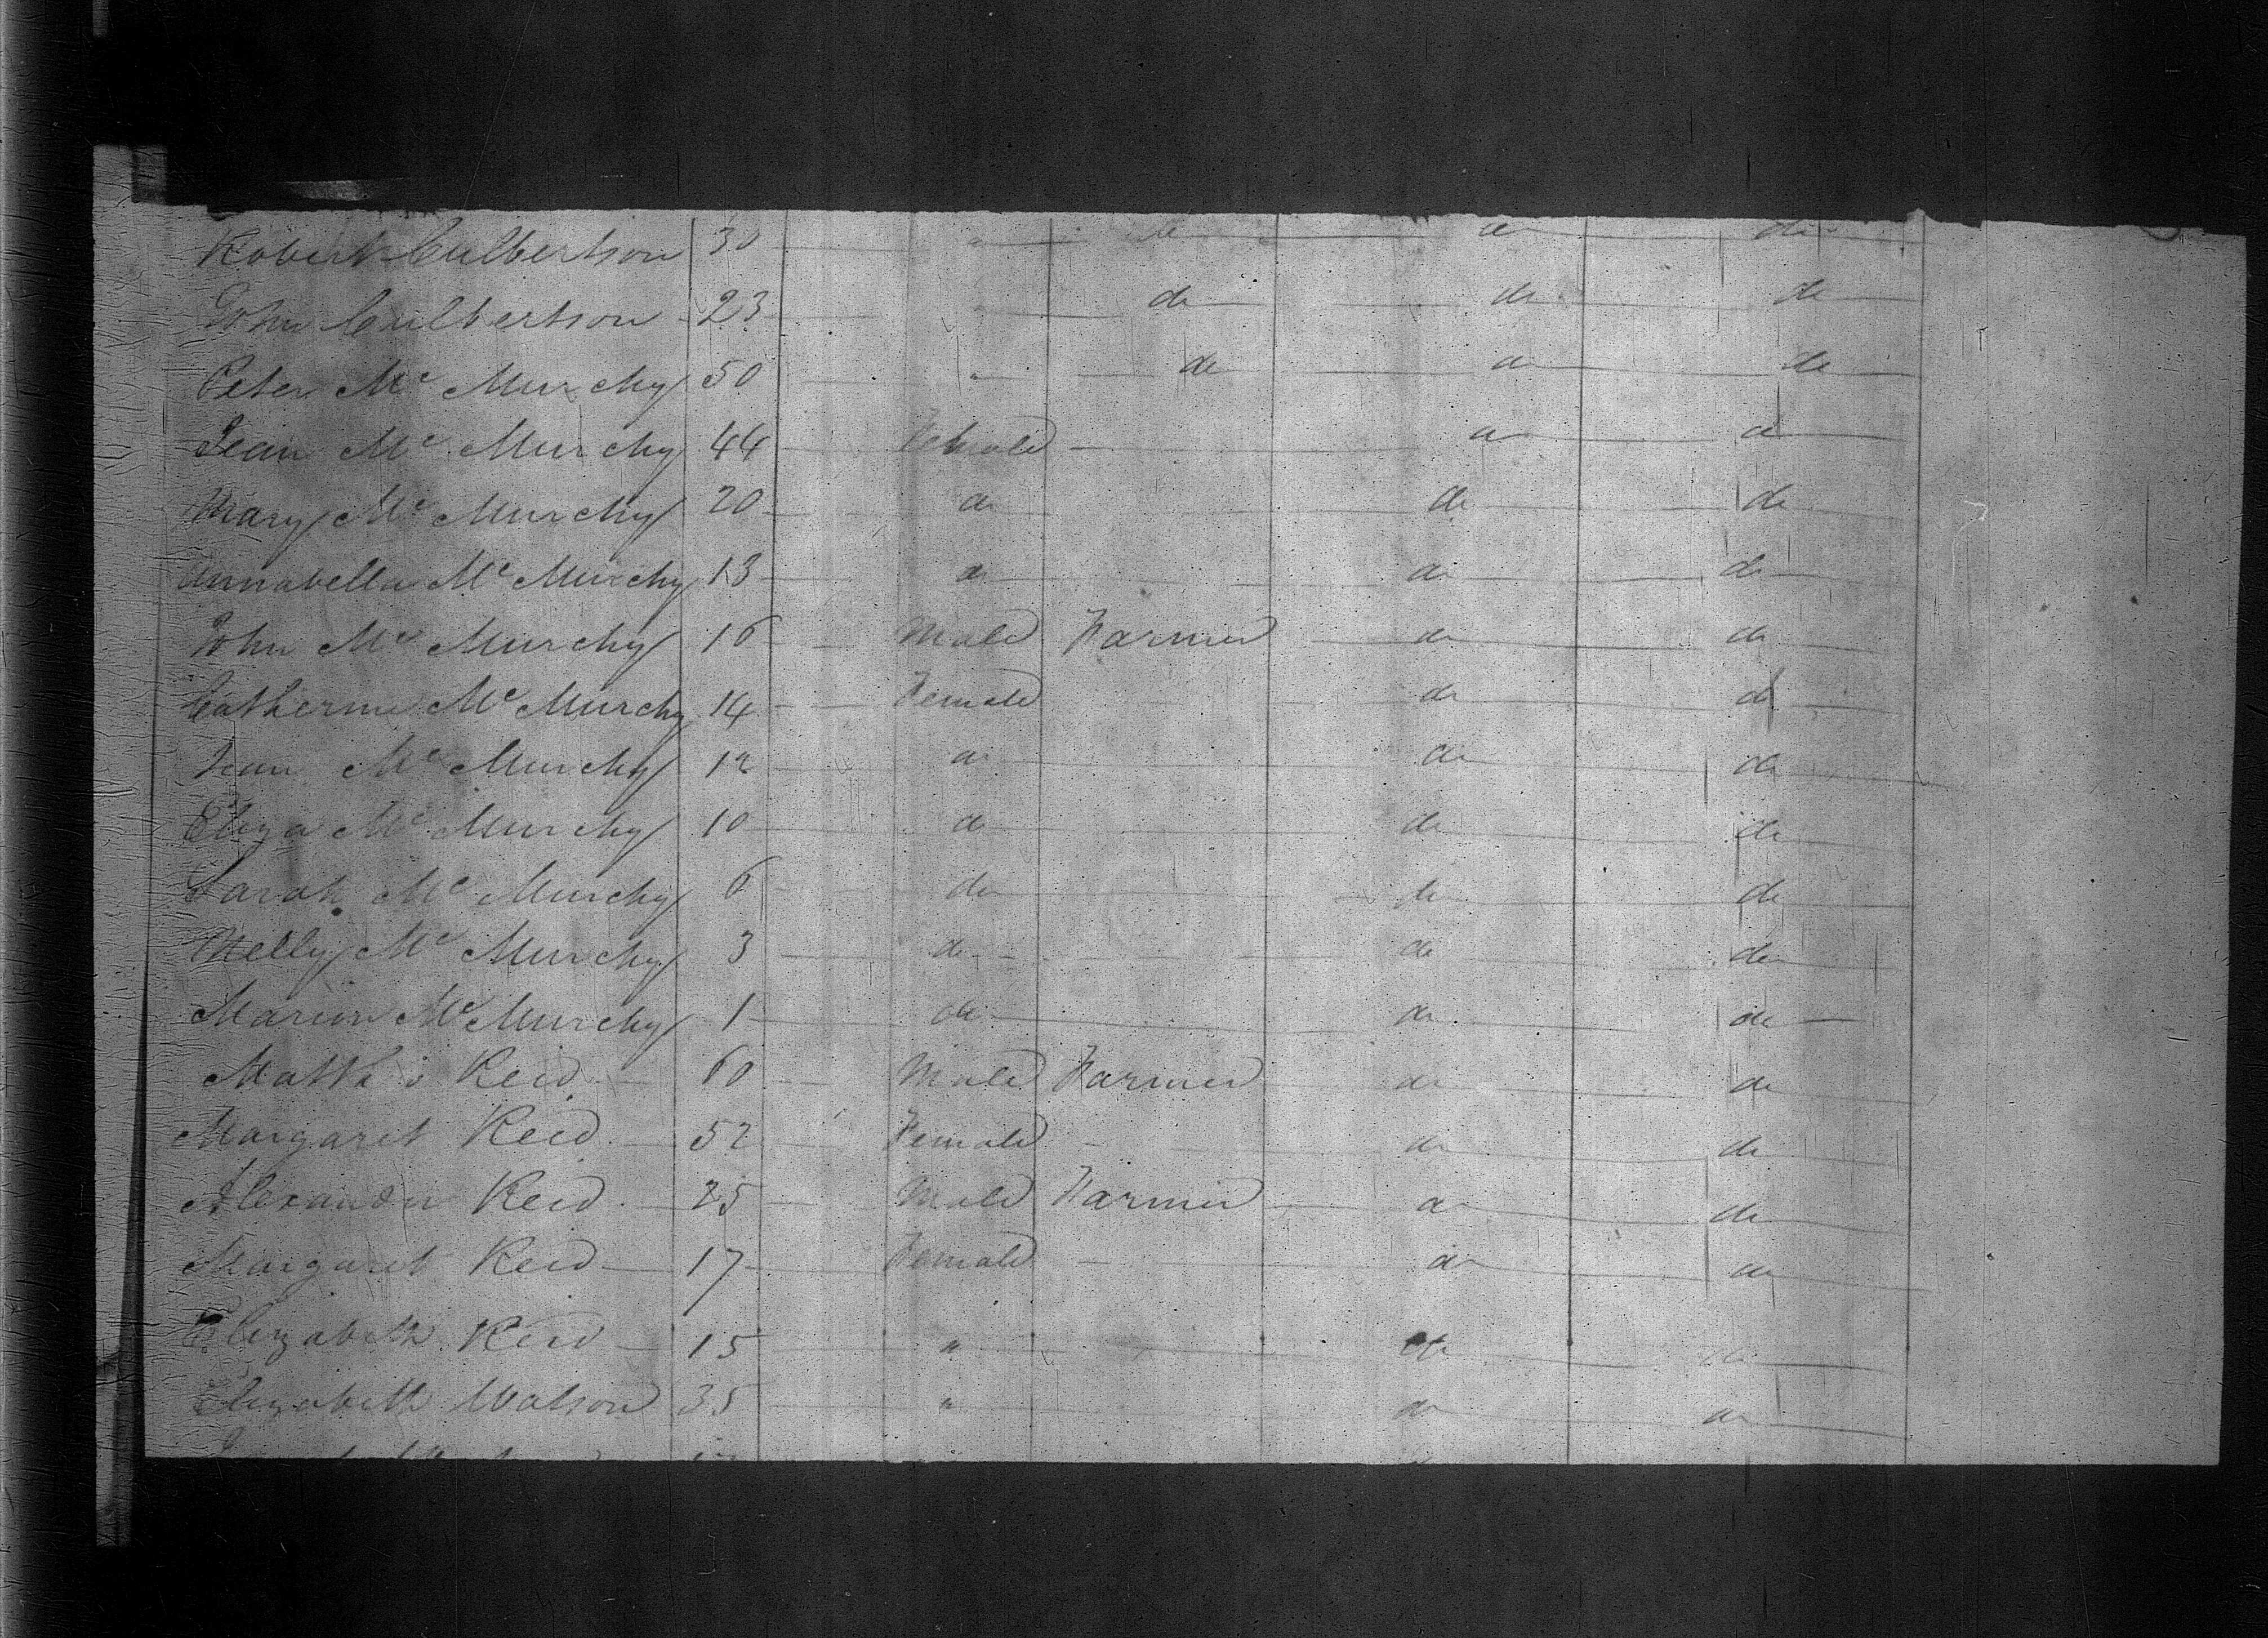 Robert Culbertson 30 " do do do
John Culbertson 23 " do do do
Peter Mc Murchy 50 " do do do
Jean Mc Murchy 44 Female do do
Mary Mc Murchy 20 do do do
Annabella Mc Murchy 13 do do do
John Mc Murchy 16 Male Farmer do do
Catherine Mc Murchy 14 Female do do
Jean Mc Murchy 12 do do do
Eliza Mc Murchy 10 do do do
Sarah Mc Murchy 6 do do do
Nelly Mc Murchy 3 do do do
Marion Mc Murchy 1 do do do
Reid 60 Male Farmer do do
Margaret Reid 52 Female do do
Alexander Reid 25 Male Farmer do do
Margaret Reid 17 Female do do
Elizabeth Reid 15 " do do
Elizabeth Watson 35 " do do